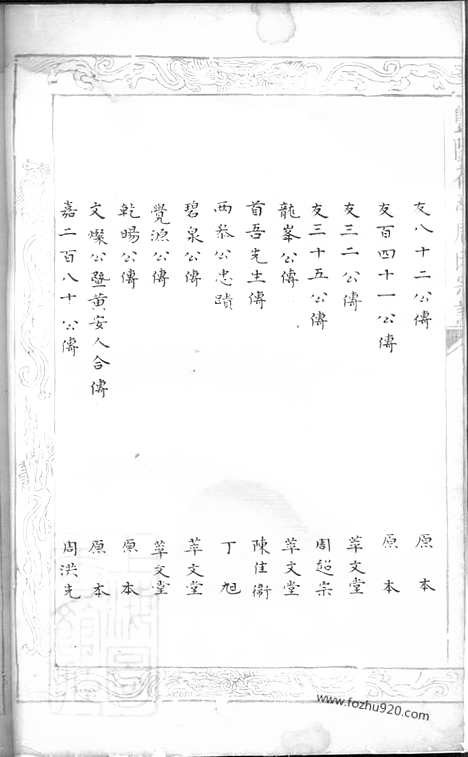 友八十二公傳 原本
友百四十一公傳 原本
友三二公傳 萃文堂
友三十五公傳 周超宗
龍峯公傳 萃文堂
首吾先生傳 陳佳衞
西恭公忠蹟 丁旭
碧泉公傳 萃文堂
覺源公傳 萃文堂
乾暘公傳 原本
文燦公暨黄安人合傳 原本
嘉二百八十公傳 周洪先
www.fozhu920.com